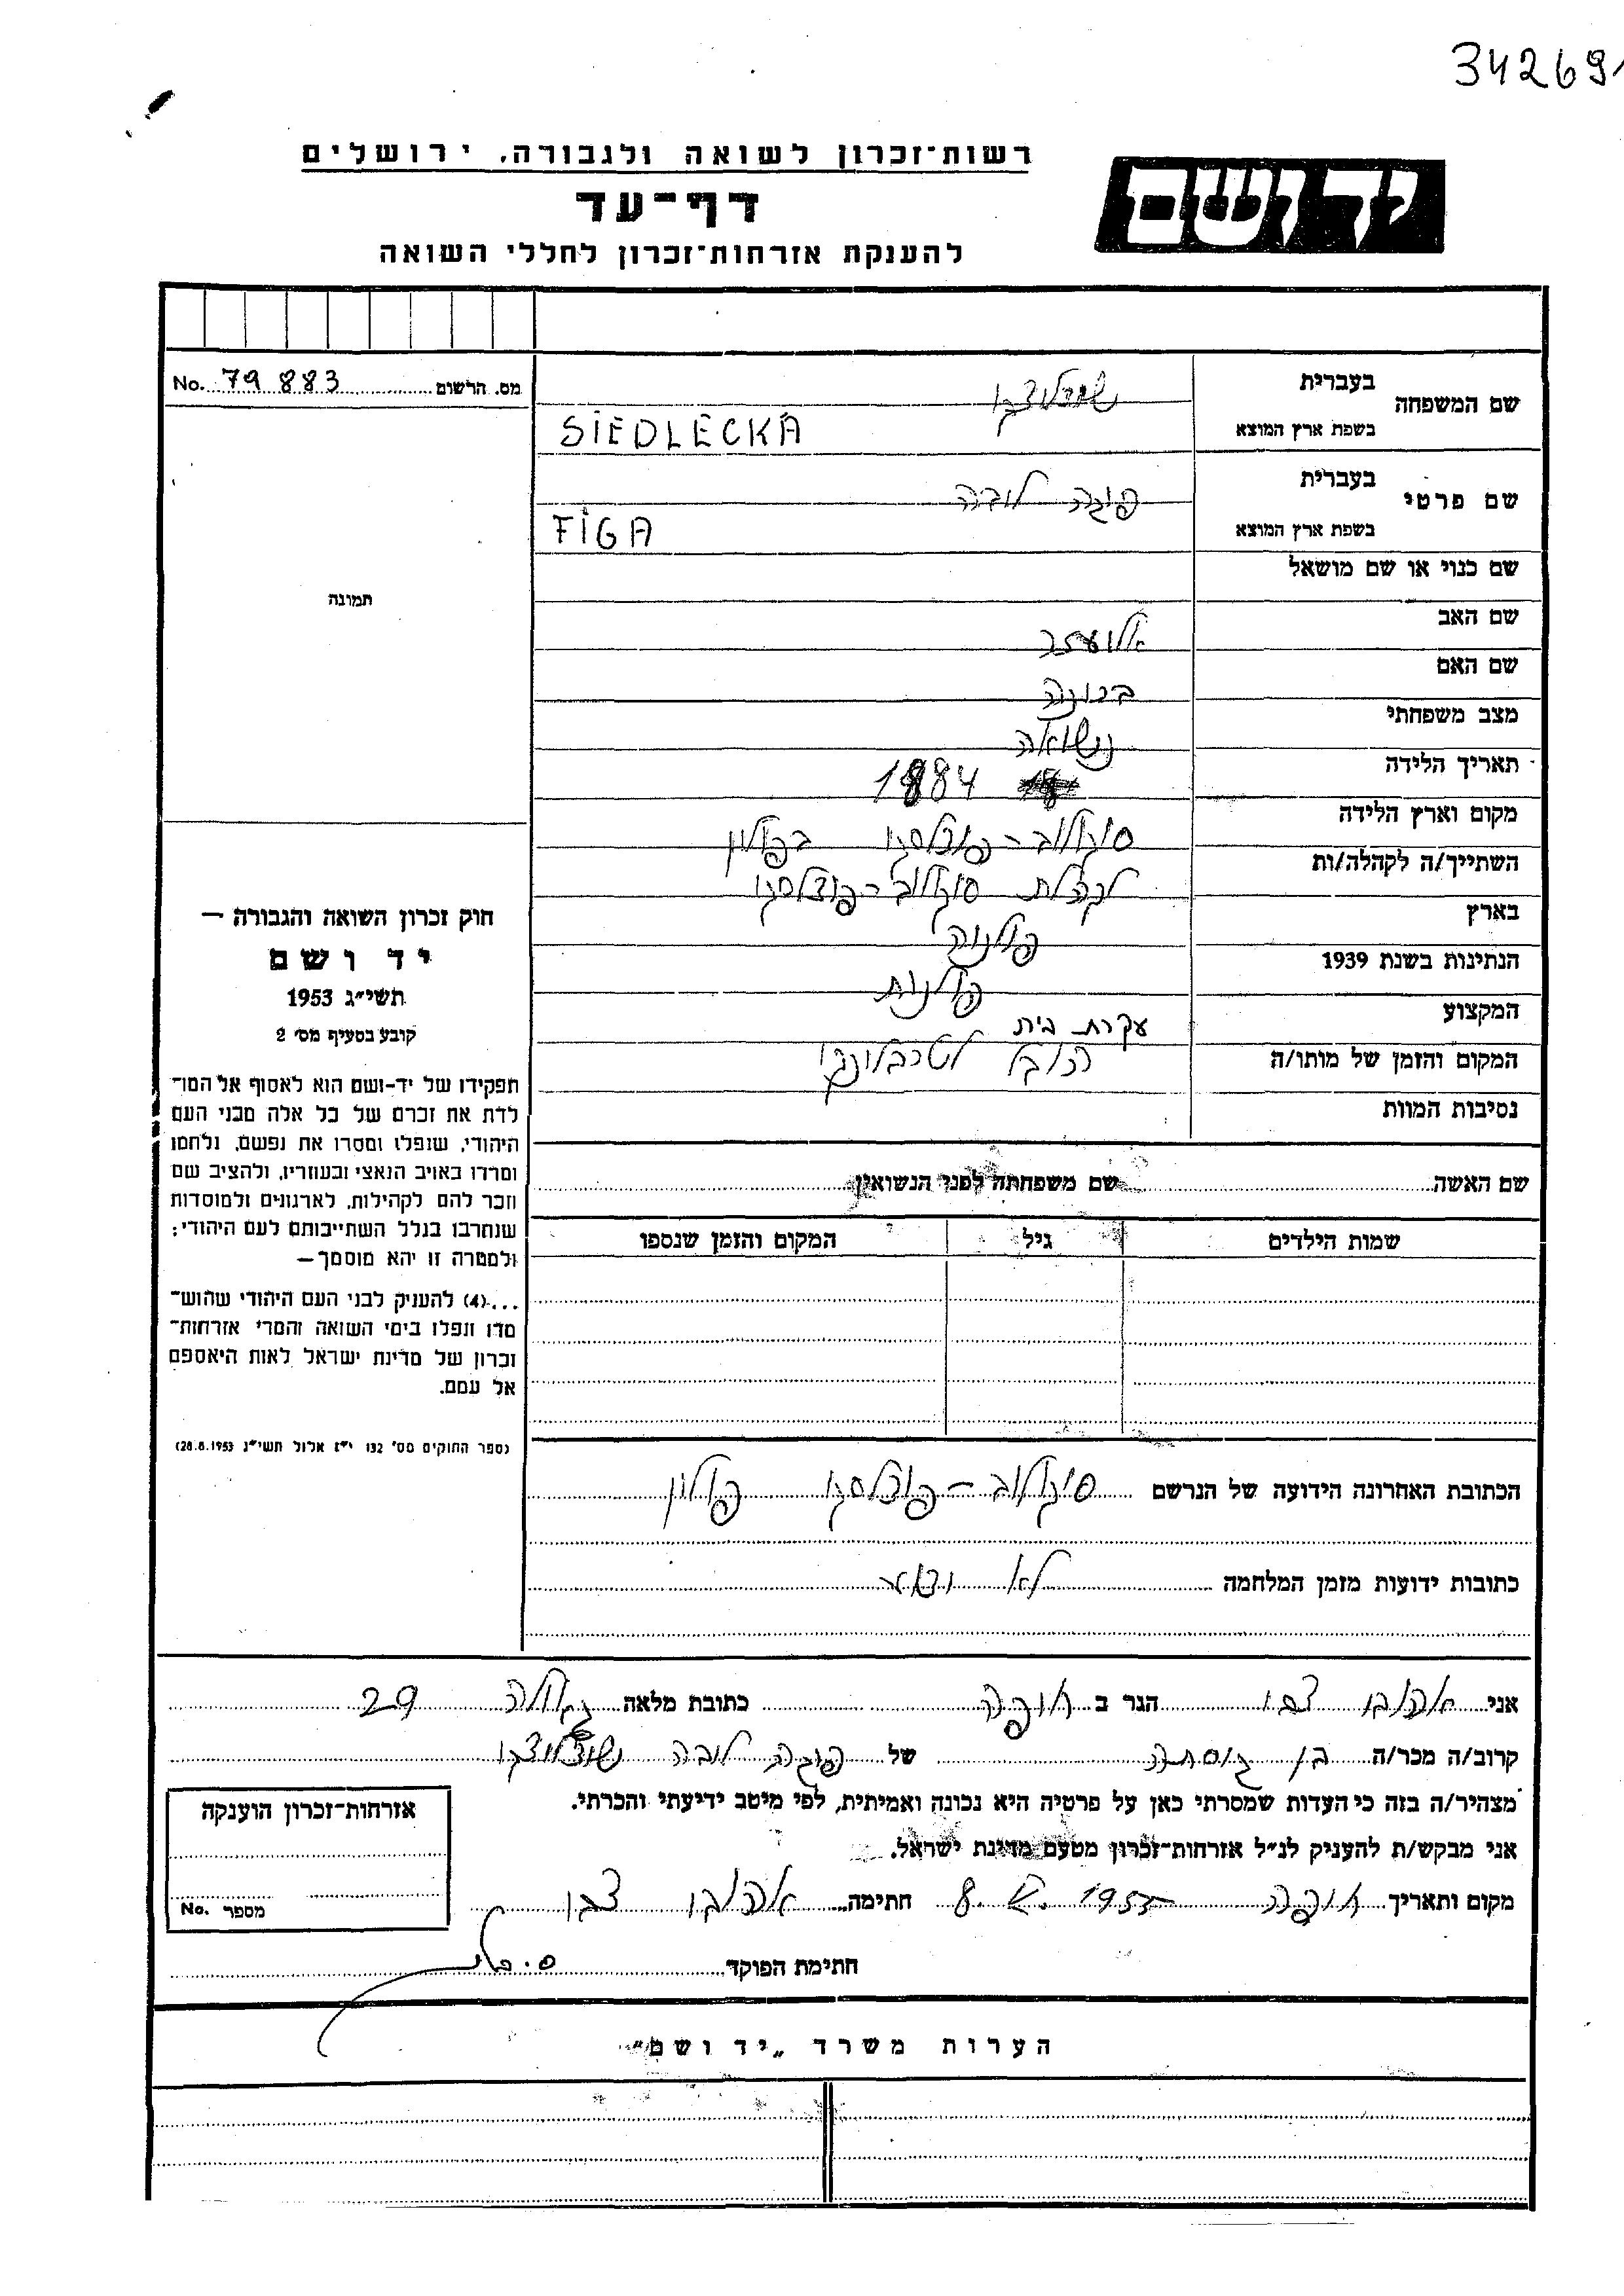 342691
רשות־זכרון לשואה ולגבורה, ירושלים
יד ושם
דף־עד
להענקת אזרחות־זכרון לחללי השואה
מס. הרשום No. 79 883
שם המשפחה
בעברית
בשפת ארץ המוצא SIEDLECKA
שם פרטי
בעברית פיגה ליבה
בשפת ארץ המוצא FIGA
שם כנוי או שם מושאל
שם האב אליעזר
שם האם
מצב משפחתי נשואה
תאריך הלידה 1884
מקום וארץ הלידה סוקולוב-פודלסקי בפולין
השתייך/ה לקהלה/ות לקהלת סוקולוב-פודלסקי
בארץ פולניה
הנתינות בשנת 1939 פולנית
המקצוע עקרת בית
המקום והזמן של מותו/ה הובל לטרבלינקי
נסיבות המוות
שם האשה
שם משפחתה לפני הנשואין
שמות הילדים
גיל
המקום והזמן שנספו
הכתובת האחרונה הידועה של הנרשם סוקולוב-פודלסקי פולין
כתובות ידועות מזמן המלחמה לא
תמונה
חוק זכרון השואה והגבורה —
יד ושם
תשי״ג 1953
קובע בסעיף מס׳ 2
תפקידו של יד-ושם הוא לאסוף אל המו־
לדת את זכרם של כל אלה מבני העם
היהודי, שנפלו ומסרו את נפשם, נלחמו
ומרדו באויב הנאצי ובעוזריו, ולהציב שם
וזכר להם לקהילות, לארגונים ולמוסדות
שנחרבו בגלל השתייכותם לעם היהודי;
ולמטרה זו יהא מוסמך—
...(4) להעניק לבני העם היהודי שהוש־
מדו ונפלו בימי השואה והמרי אזרחות־
זכרון של מדינת ישראל לאות היאספם
אל עמם.
(ספר החוקים מס׳ 132 י״ז אלול תשי״ג 28.8.1953)
אני צבי הגר ב חיפה כתובת מלאה גאולה 29
קרוב/ה מכר/ה בן גיסתה של פיגה ליבה
מצהיר/ה בזה כי העדות שמסרתי כאן על פרטיה היא נכונה ואמיתית, לפי מיטב ידיעתי והכרתי.
אני מבקש/ת להעניק לנ״ל אזרחות־זכרון מטעם מדינת ישראל.
מקום ותאריך חיפה 1957 חתימה צבי
חתימת הפוקד
אזרחות־זכרון הוענקה
מספר No.
הערות משרד „יד ושם״